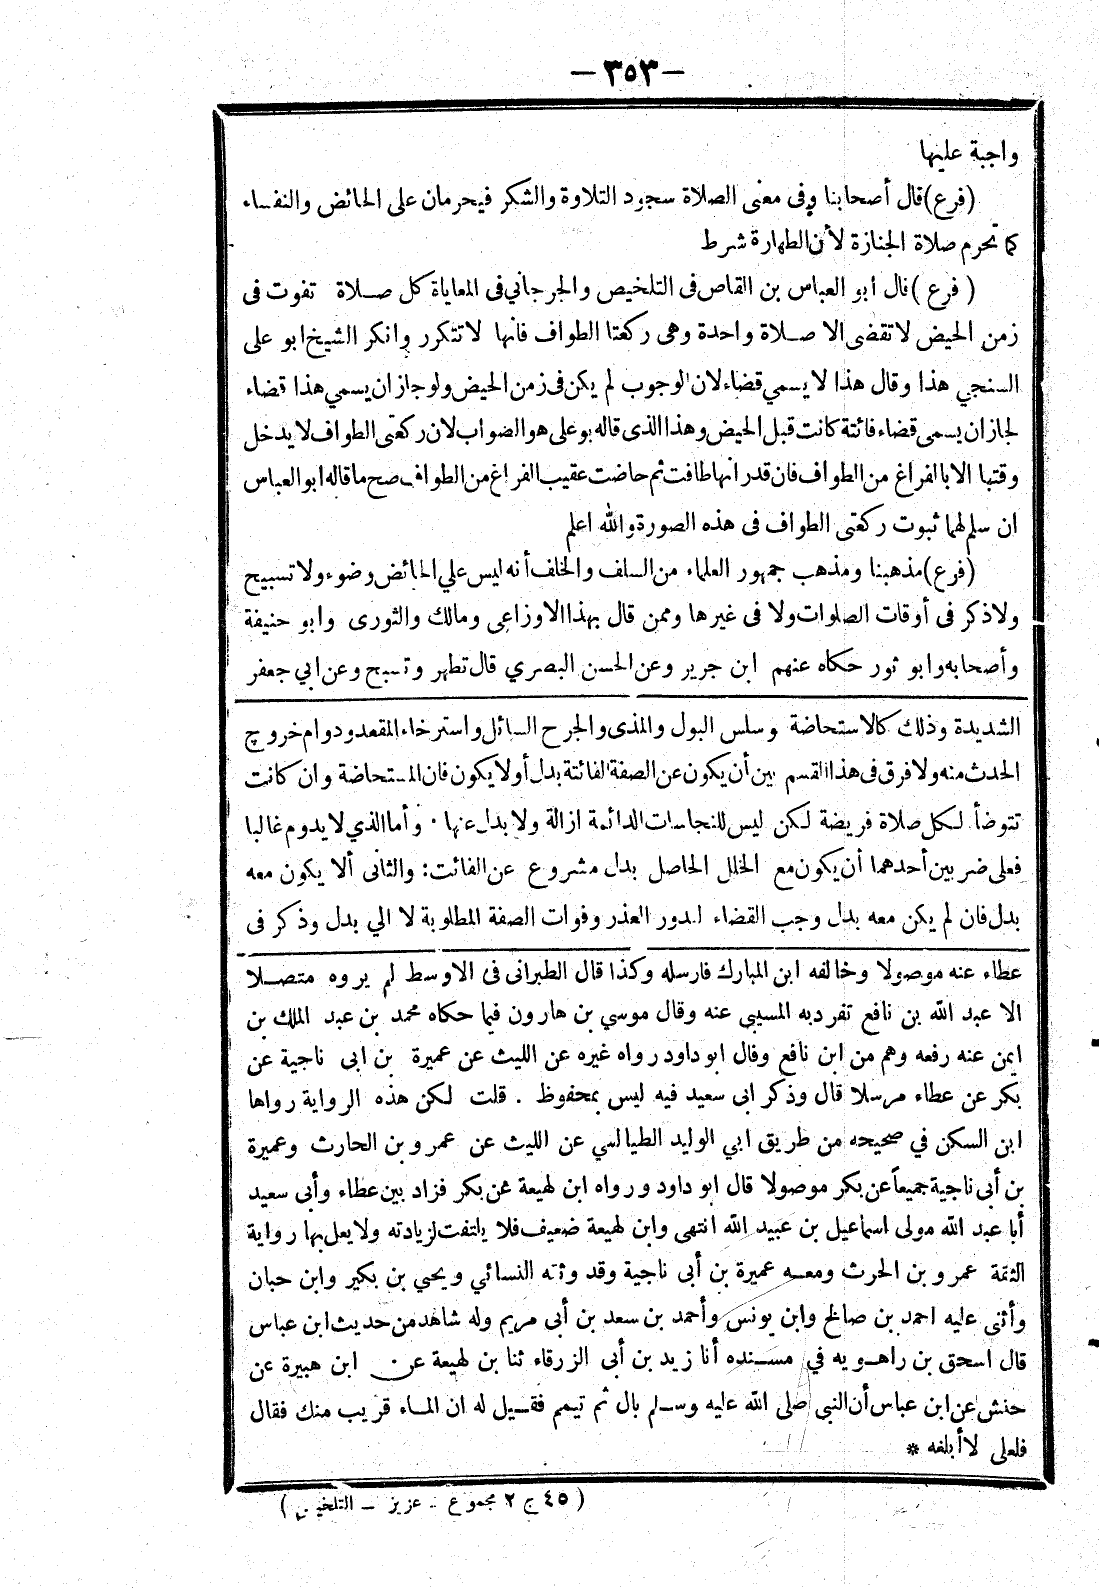 — ٣٥٣ —
واجبة عليها
(فرع) قال أصحابنا وفى معنى الصلاة سجود التلاوة والشكر فيحرمان على الحائض والنفساء
كما تحرم صلاة الجنازة لأن الطهارة شرط
( فرع ) قال أبو العباس بن القاص فى التلخيص والجرجاني فى المعاياة كل صلاة تفوت فى
زمن الحيض لا تقضى الا صلاة واحدة وهى ركعتا الطواف فانها لا تتكرر وانكر الشيخ ابو على
السنجي هذا وقال هذا لا يسمي قضاء لان الوجوب لم يكن فى زمن الحيض ولو جاز ان يسمي هذا قضاء
لجاز ان يسمى قضاء فائتة كانت قبل الحيض وهذا الذى قاله بو على هو الصواب لان ركعتى الطواف لا يدخل
وقتها الا بالفراغ من الطواف فان قدر انها طافت ثم حاضت عقيب الفراغ من الطواف صح ما قاله ابو العباس
ان سلم لهما ثبوت ركعتى الطواف فى هذه الصورة والله اعلم
(فرع) مذهبنا ومذهب جمهور العلماء من السلف والخلف أنه ليس علي الحائض وضوء ولا تسبيح
ولا ذكر فى أوقات الصلوات ولا فى غيرها وممن قال بهذا الاوزاعى ومالك والثورى وابو حنيفة
وأصحابه وابو ثور حكاه عنهم ابن جرير وعن الحسن البصري قال تطهر وتسبح وعن ابي جعفر
الشديدة وذلك كالاستحاضة وسلس البول والمذى والجرح السائل واسترخاء المقعد ودوام خروج
الحدث منه ولا فرق فى هذا القسم بين أن يكون عن الصفة الفائتة بدل أو لا يكون فان المستحاضة وان كانت
تتوضأ لكل صلاة فريضة لكن ليس للنجاسات الدائمة ازالة ولا بدل عنها . وأما الذي لا يدوم غالبا
فعلى ضربين أحدهما أن يكون مع الخلل الحاصل بدل مشروع عن الفائت: والثانى ألا يكون معه
بدل فان لم يكن معه بدل وجب القضاء لندور العذر وفوات الصفة المطلوبة لا الي بدل وذكر فى
عطاء عنه موصولا وخالفه ابن المبارك فارسله وكذا قال الطبرانى فى الاوسط لم يروه متصلا
الا عبد الله بن نافع تفرد به المسيبى عنه وقال موسي بن هارون فيما حكاه محمد بن عبد الملك بن
ايمن عنه رفعه وهم من ابن نافع وقال ابو داود رواه غيره عن الليث عن عميرة بن ابى ناجية عن
بكر عن عطاء مرسلا قال وذكر ابى سعيد فيه ليس بمحفوظ . قلت لكن هذه الرواية رواها
ابن السكن في صحيحه من طريق ابي الوليد الطيالسي عن الليث عن عمرو بن الحارث وعميرة
بن أبى ناجية جميعاً عن بكر موصولا قال ابو داود ورواه ابن لهيعة عن بكر فزاد بين عطاء وأبى سعيد
أبا عبد الله مولى اسماعيل بن عبيد الله انتهى وابن لهيعة ضعيف فلا يلتفت لزيادته ولا يعل بها رواية
الثقة عمرو بن الحرث ومعه عميرة بن أبى ناجية وقد وثقه النسائي ويحيي بن بكير وابن حبان
وأثنى عليه احمد بن صالح وابن يونس وأحمد بن سعد بن أبى مريم وله شاهد من حديث ابن عباس
قال اسحق بن راهويه في مسنده أنا زيد بن أبى الزرقاء ثنا بن لهيعة عن ابن هبيرة عن
حنش عن ابن عباس أن النبى صلى الله عليه وسلم بال ثم تيمم فقيل له ان الماء قريب منك فقال
فلعلى لا أبلغه *
( ٤٥ ج ٢ مجموع - عزيز - التلخيص )